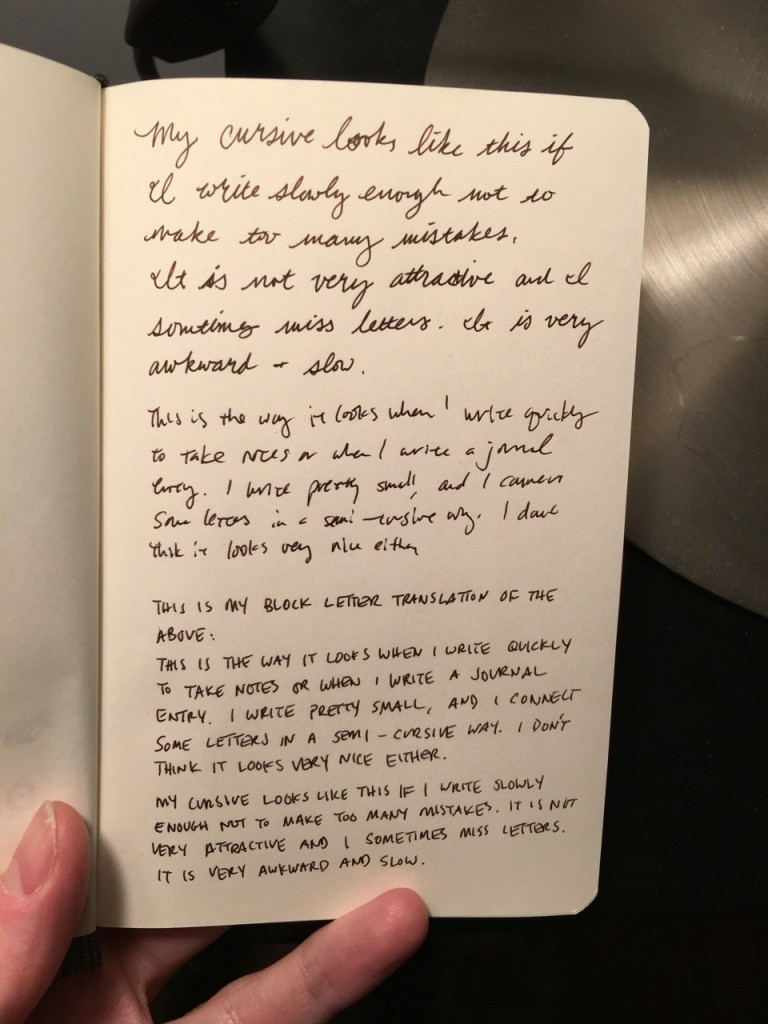 My cursive looks like this if
I write slowly enough not to
make too many mistakes.
It is not very attractive and I
sometims miss letters. It is very
awkward + slow.
This is the way it looks when I write quickly
to take notes or when I write a journal
entry. I write pretty small, and I connect
some letters in a semi-cursive way. I don't
think it looks very nice either
THIS IS MY BLOCK LETTER TRANSLATION OF THE
ABOVE:
THIS IS THE WAY IT LOOKS WHEN I WRITE QUICKLY
TO TAKE NOTES OR WHEN I WRITE A JOURNAL
ENTRY. I WRITE PRETTY SMALL, AND I CONNECT
SOME LETTERS IN A SEMI-CURSIVE WAY. I DON'T
THINK IT LOOKS VERY NICE EITHER.
MY CURSIVE LOOKS LIKE THIS IF I WRITE SLOWLY
ENOUGH NOT TO MAKE TOO MANY MISTAKES. IT IS NOT
VERY ATTRACTIVE AND I SOMETIMES MISS LETTERS.
IT IS VERY AWKWARD AND SLOW.